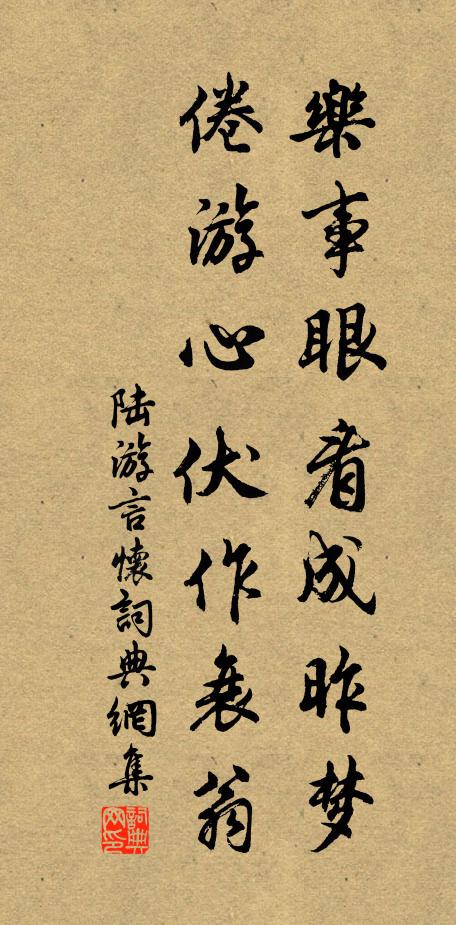 樂事眼看成昨梦
倦游心伏作衰翁
陆游言懷詞典網集
詞典网印